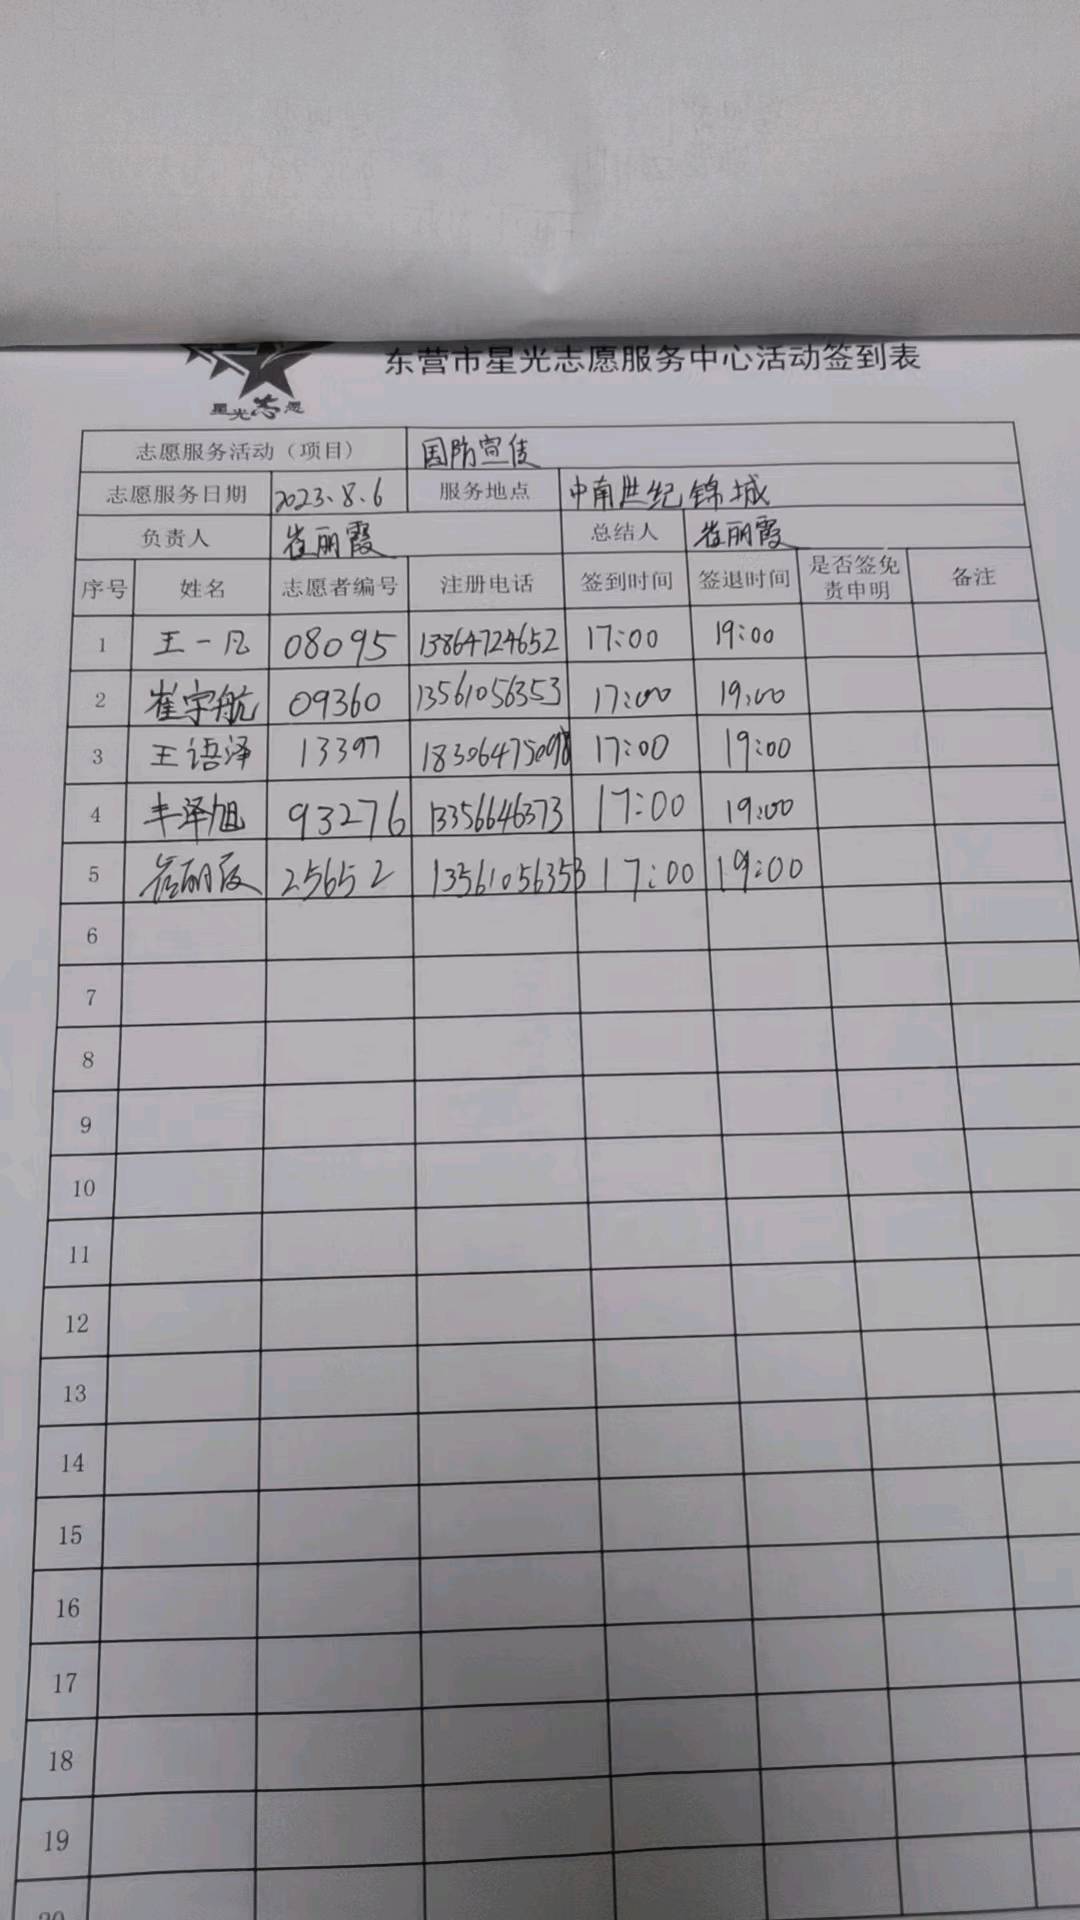 东营市星光志愿服务中心活动签到表
星光志愿
志愿服务活动（项目） 国防宣传
志愿服务日期 2023.8.6 服务地点 中南世纪锦城
负责人 崔丽霞 总结人 崔丽霞
序号 姓名 志愿者编号 注册电话 签到时间 签退时间 是否签免责申明 备注
1 王一凡 08095 13864724652 17:00 19:00
2 崔宇航 09360 13561056353 17:00 19:00
3 王语泽 13397 17:00 19:00
4 丰泽旭 93276 13356646373 17:00 19:00
5 崔丽霞 25652 13561056353 17:00 19:00
6
7
8
9
10
11
12
13
14
15
16
17
18
19
20